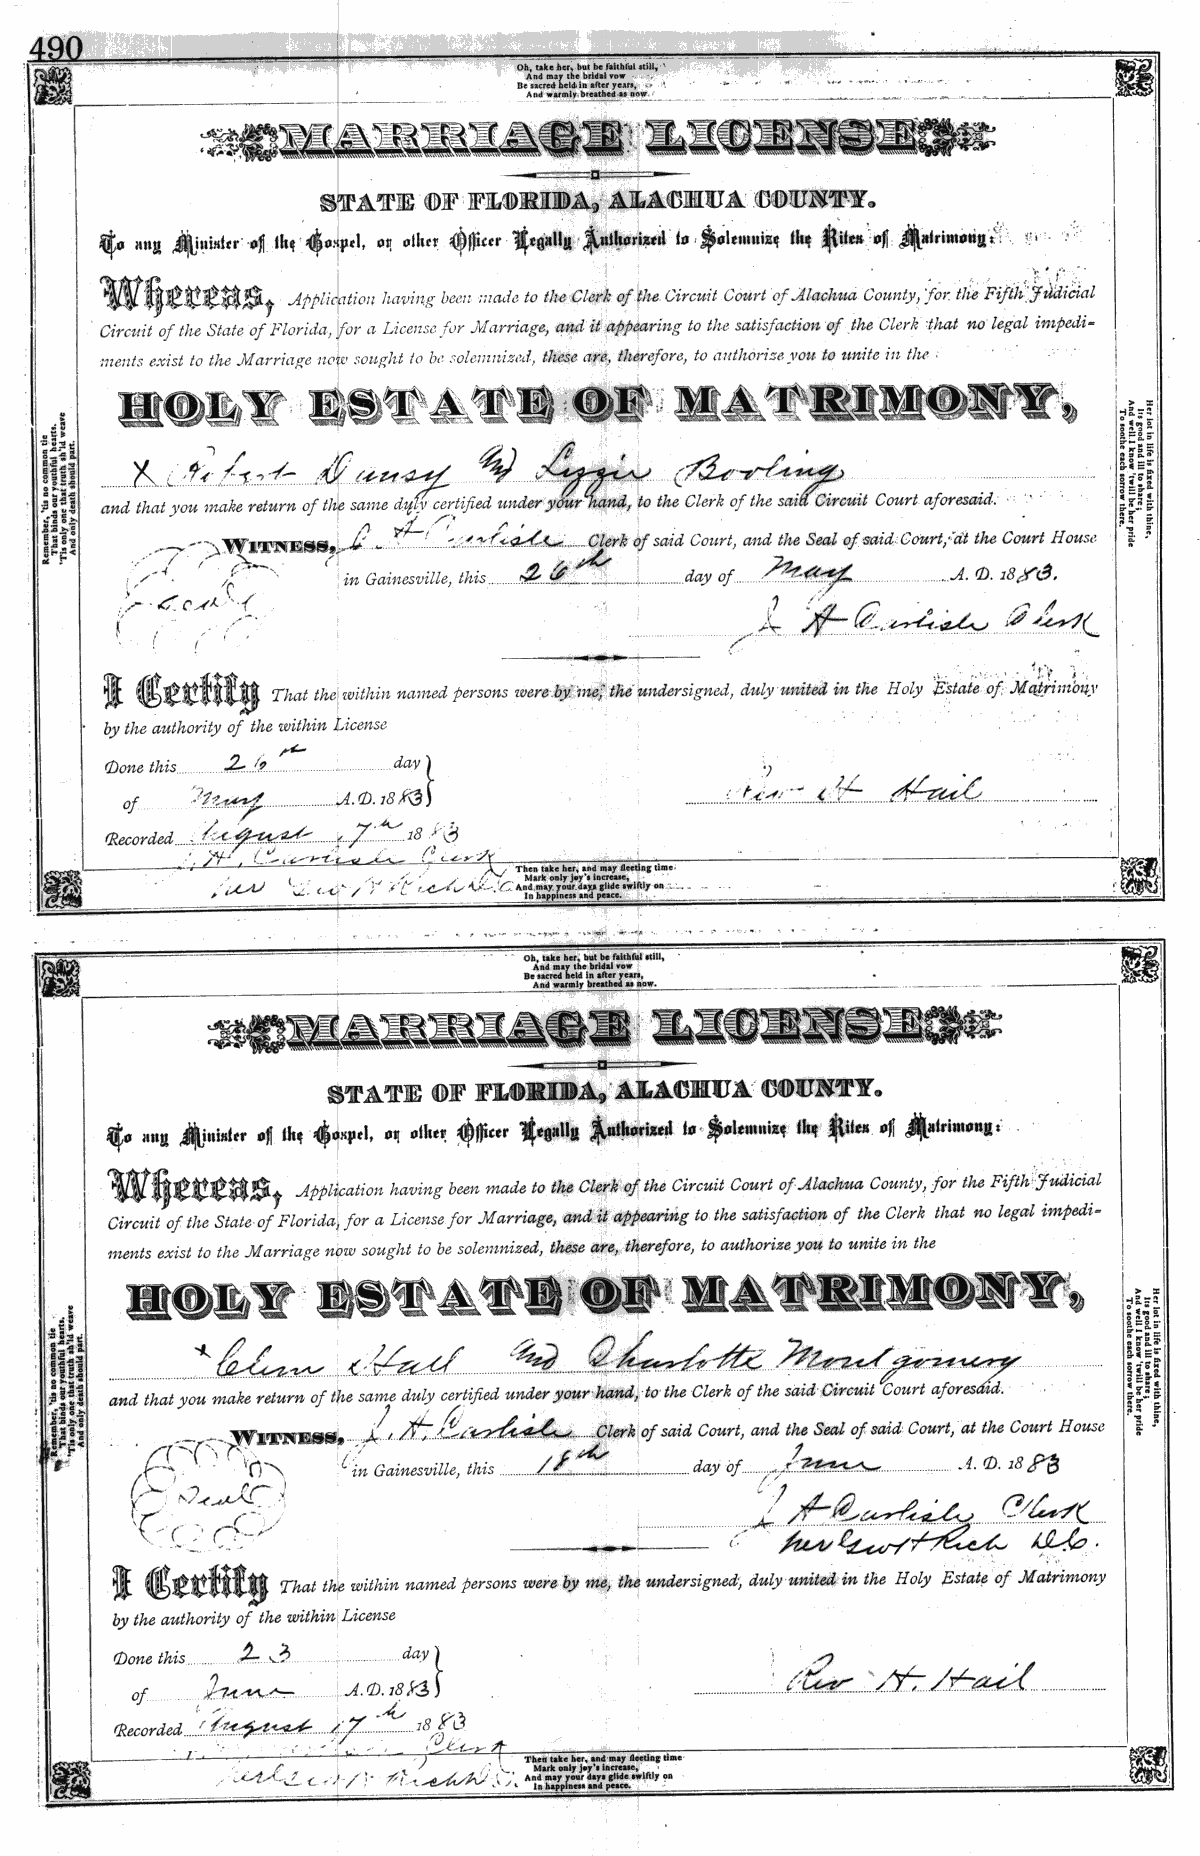 490
Oh, take her, but be faithful still,
And may the bridal vow
Be sacred held in after years,
And warmly breathed as now.
MARRIAGE LICENSE
STATE OF FLORIDA, ALACHUA COUNTY.
To any Minister of the Gospel, or other Officer Legally Authorized to Solemnize the Rites of Matrimony:
Whereas, Application having been made to the Clerk of the Circuit Court of Alachua County, for the Fifth Judicial
Circuit of the State of Florida, for a License for Marriage, and it appearing to the satisfaction of the Clerk that no legal impedi-
ments exist to the Marriage now sought to be solemnized, these are, therefore, to authorize you to unite in the
HOLY ESTATE OF MATRIMONY,
X Robert Dansy and Lizzie Bowling
and that you make return of the same duly certified under your hand, to the Clerk of the said Circuit Court aforesaid.
WITNESS, J. A Carlisle Clerk of said Court, and the Seal of said Court, at the Court House
Seal
in Gainesville, this 26th day of May A. D. 1883.
J A Carlisle Clerk
I Certify That the within named persons were by me, the undersigned, duly united in the Holy Estate of Matrimony
by the authority of the within License
Done this 26th day
of May A. D. 1883
Rev H Hail
Recorded August 17th 1883
J. A. Carlisle Clerk
per Geo H Rich D.C.
Then take her, and may fleeting time
Mark only joy's increase,
And may your days glide swiftly on
In happiness and peace.
Remember, 'tis no common tie
That binds our youthful hearts,
'Tis only one that truth sh'ld weave
And only death should part.
Her lot in life is fixed with thine,
Its good and ill to share;
And well I know 'twill be her pride
To soothe each sorrow there.
Oh, take her, but be faithful still,
And may the bridal vow
Be sacred held in after years,
And warmly breathed as now.
MARRIAGE LICENSE
STATE OF FLORIDA, ALACHUA COUNTY.
To any Minister of the Gospel, or other Officer Legally Authorized to Solemnize the Rites of Matrimony:
Whereas, Application having been made to the Clerk of the Circuit Court of Alachua County, for the Fifth Judicial
Circuit of the State of Florida, for a License for Marriage, and it appearing to the satisfaction of the Clerk that no legal impedi-
ments exist to the Marriage now sought to be solemnized, these are, therefore, to authorize you to unite in the
HOLY ESTATE OF MATRIMONY,
x Clem Hall and Charlotte Montgomery
and that you make return of the same duly certified under your hand, to the Clerk of the said Circuit Court aforesaid.
WITNESS, J. A. Carlisle Clerk of said Court, and the Seal of said Court, at the Court House
Seal
in Gainesville, this 18th day of June A. D. 1883
J A Carlisle Clerk
per Geo H Rich D.C.
I Certify That the within named persons were by me, the undersigned, duly united in the Holy Estate of Matrimony
by the authority of the within License
Done this 23 day
of June A. D. 1883
Rev H. Hail
Recorded August 17th 1883
Clerk
per Geo H Rich D.C.
Then take her, and may fleeting time
Mark only joy's increase,
And may your days glide swiftly on
In happiness and peace.
Remember, 'tis no common tie
That binds our youthful hearts,
'Tis only one that truth sh'ld weave
And only death should part.
Her lot in life is fixed with thine,
Its good and ill to share;
And well I know 'twill be her pride
To soothe each sorrow there.